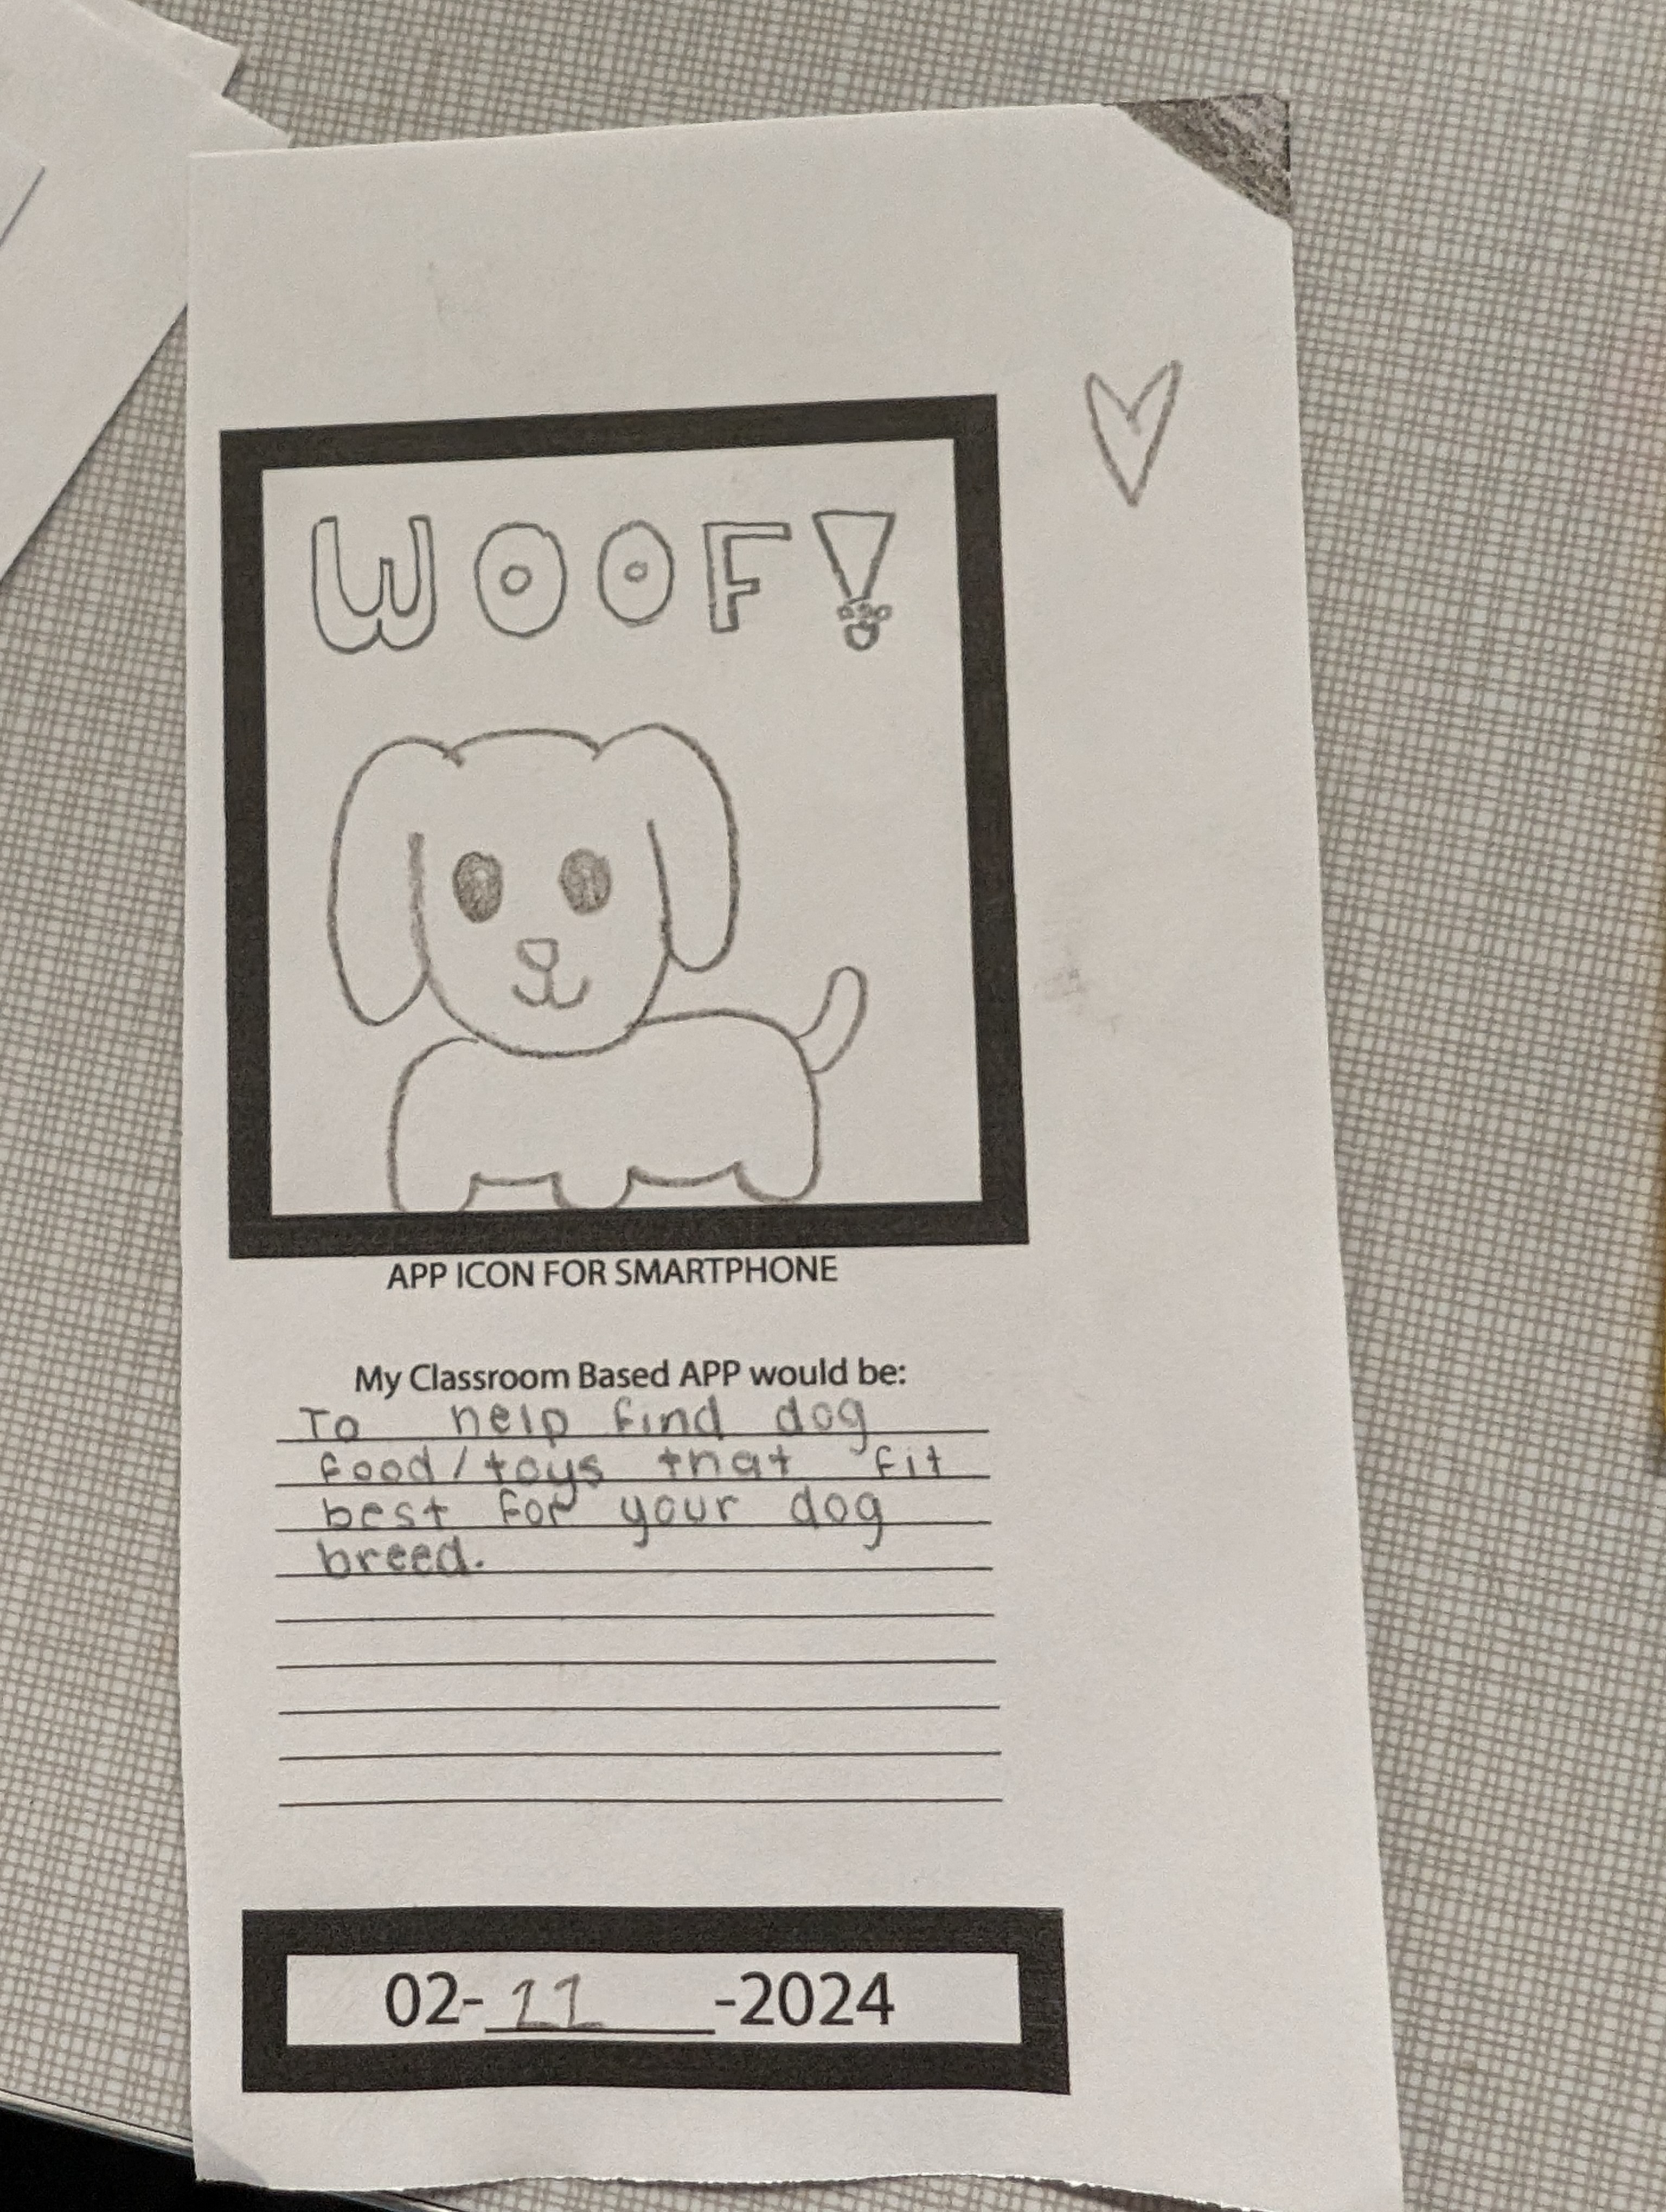 WOOF!
APP ICON FOR SMARTPHONE
My Classroom Based APP would be:
To help find dog
food/toys that fit
best for your dog
breed.
02-11-2024